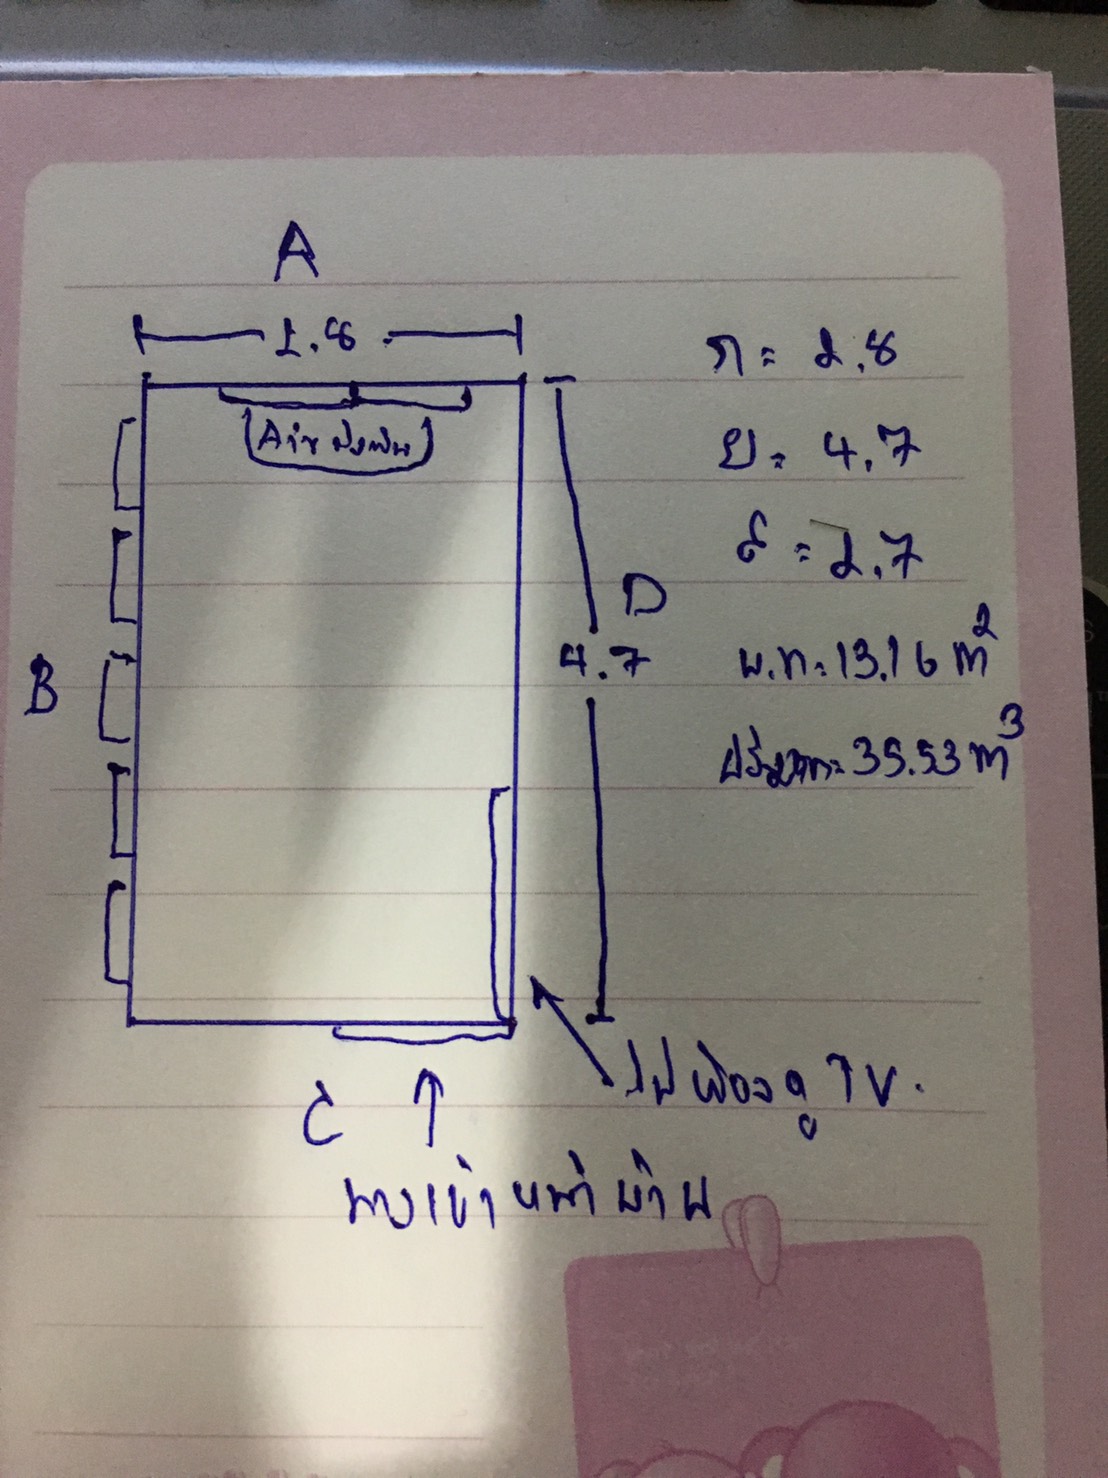 A
2.8
Air ผนัง
ก = 2.8
ย = 4.7
ส = 2.7
B
D
4.7
พ.ท. = 13.16 m²
ปริมาตร = 35.53 m³
ไปห้องดู TV.
C
ทางเข้าหน้าบ้าน